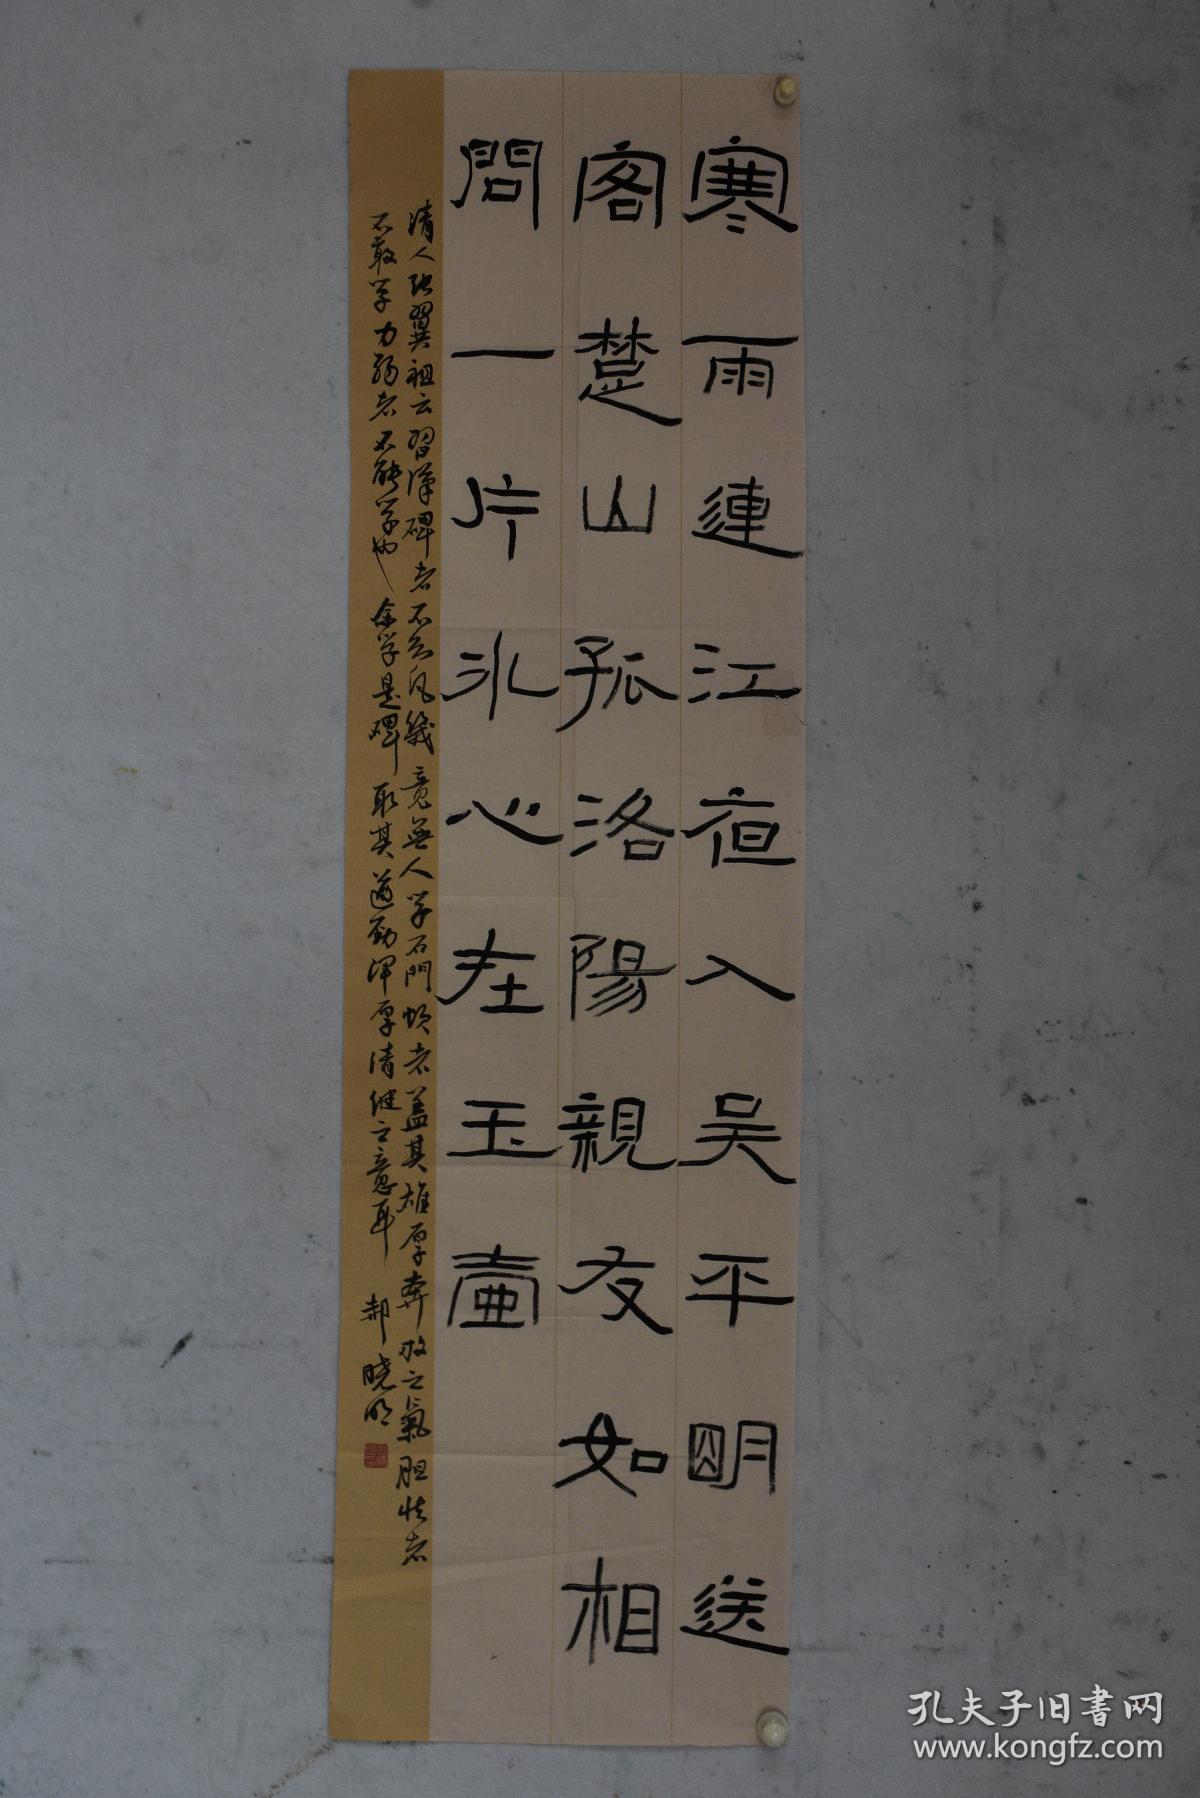 寒雨連江夜入吴平明送
客楚山孤洛陽親友如相
問一片冰心在玉壺
清人张翼祖云習漢碑者不知凡幾竟無人学石門頌者盖其雄厚奔放之氣胆怯者
不敢学力弱者不能学也余学是碑取其遒勁渾厚清健之意耳 郝曉明
孔夫子旧書网
www.kongfz.com